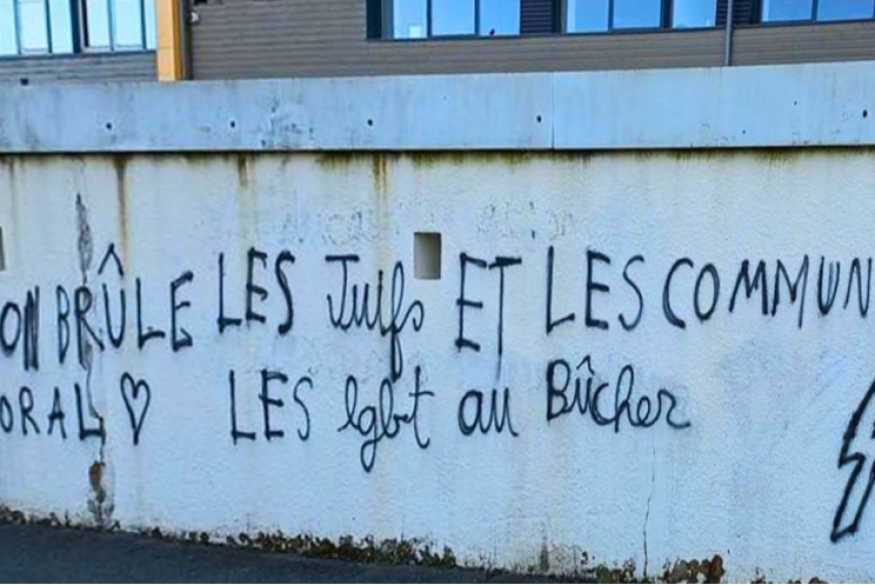 ON BRÛLE LES Juifs ET LES COMMUN
ORAL ♡ LES lgbt au Bûcher